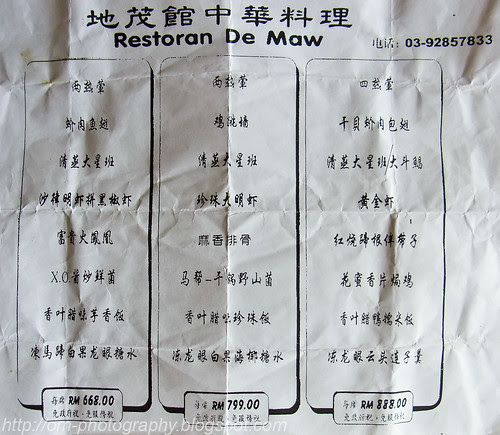 地茂館中華料理
Restoran De Maw
电话: 03-92857833
两热荤
蚧肉魚翅
清蒸大星班
沙律明虾拼黑椒虾
富貴火鳳凰
X.O.酱炒鮮菌
香叶腊味芋香饭
凍馬蹄白果龙眼糖水
每席 RM 668.00
免政府税·免服務税
两热荤
鸡跳墙
清蒸大星班
珍珠大明虾
麻香排骨
马帮-干锅野山菌
香叶腊味珍珠饭
冻龙眼白果海椰糖水
每席 RM 799.00
免政府税·免服務税
四热荤
干贝蚧肉包翅
清蒸大星班/大斗鲳
黄金虾
红烧蹄根伴带子
花蜜香片焗鸡
香叶腊鸭糯米饭
冻龙眼云头莲子羹
每席 RM 888.00
免政府税·免服務税
http://om-photography.blogspot.com